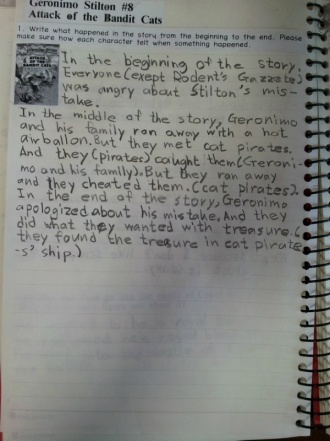 Geronimo Stilton #8
Attack of the Bandit Cats
1. Write what happened in the story from the beginning to the end. Please
make sure how each character felt when something happened.
ATTACK
OF THE
BANDIT CATS
In the beginning of the story,
Everyone (exept Rodent's Gazzete)
was angry about Stilton's mis-
take.
In the middle of the story, Geronimo
and his family ran away with a hot
airballon. But they met cat pirates.
And they (pirates) caught them (Geroni-
mo and his family). But they ran away
and they cheated them. (cat pirates).
In the end of the story, Geronimo
apologized about his mistake. And they
did what they wanted with treasure. (
they found the tresure in cat pirate
-s' ship.)